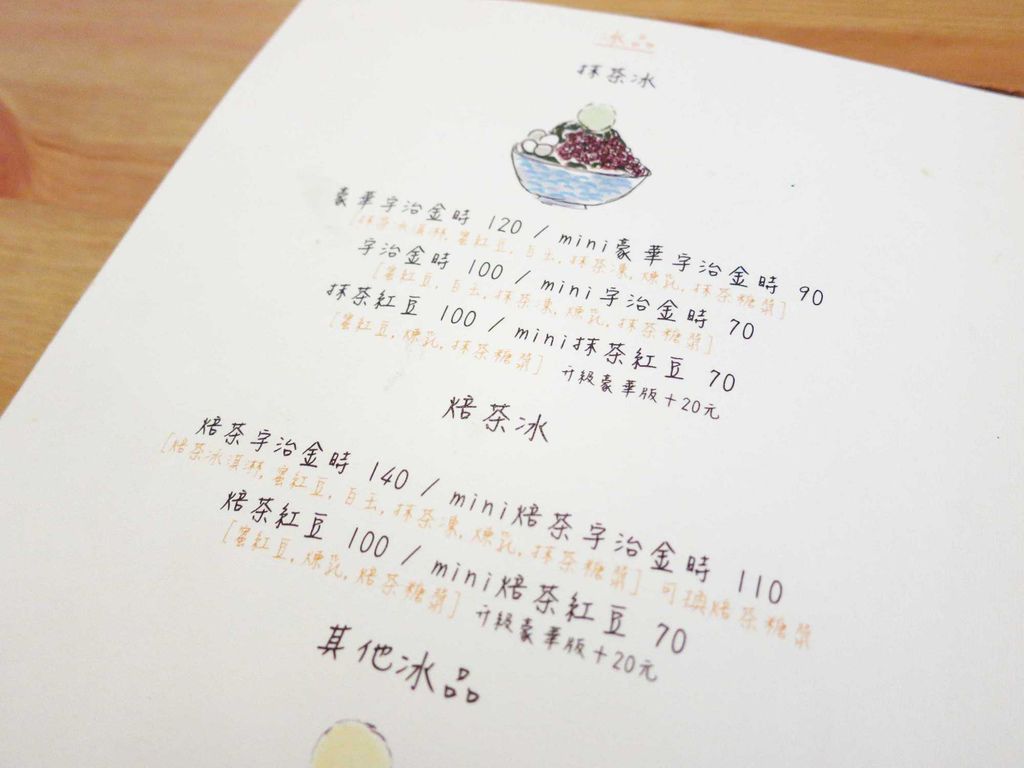 冰品
抹茶冰
豪華宇治金時 120 / mini豪華宇治金時 90
[抹茶冰淇淋, 蜜紅豆, 白玉, 抹茶凍, 煉乳, 抹茶糖漿]
宇治金時 100 / mini宇治金時 70
[蜜紅豆, 白玉, 抹茶凍, 煉乳, 抹茶糖漿]
抹茶紅豆 100 / mini抹茶紅豆 70
[蜜紅豆, 煉乳, 抹茶糖漿] 升級豪華版+20元
焙茶冰
焙茶宇治金時 140 / mini焙茶宇治金時 110
[焙茶冰淇淋, 蜜紅豆, 白玉, 抹茶凍, 煉乳, 抹茶糖漿] 可換焙茶糖漿
焙茶紅豆 100 / mini焙茶紅豆 70
[蜜紅豆, 煉乳, 焙茶糖漿] 升級豪華版+20元
其他冰品